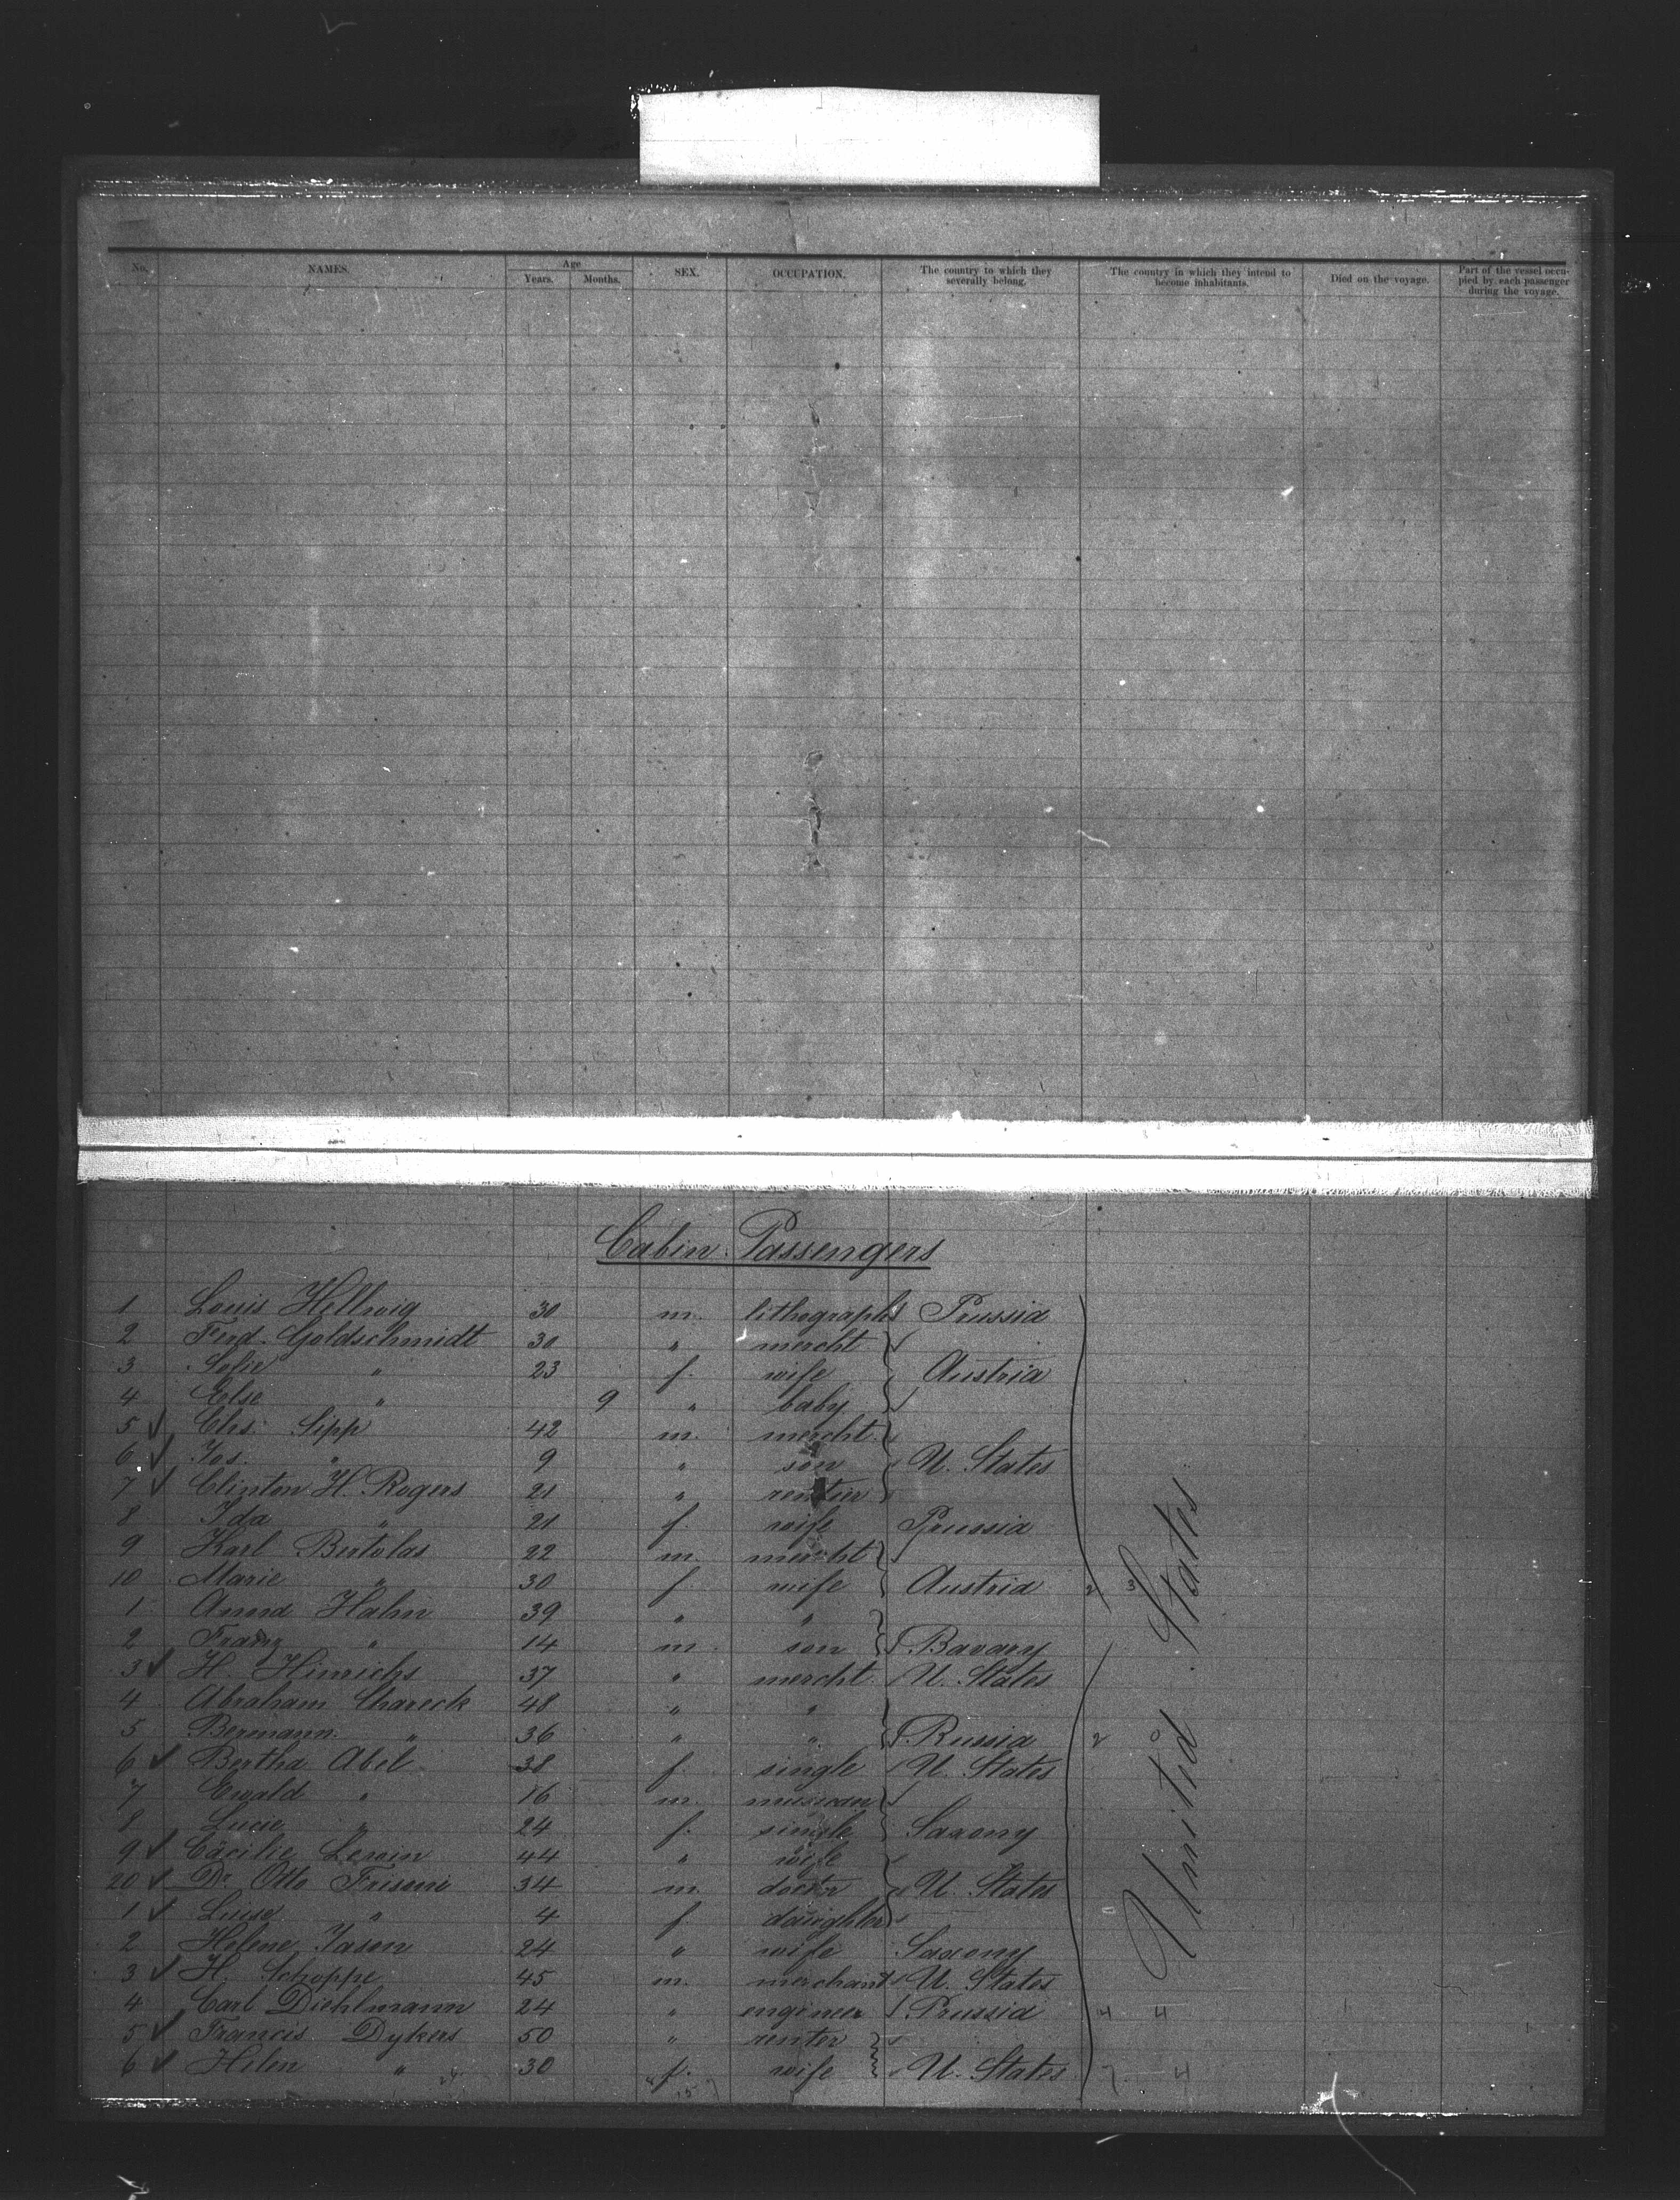 No. NAMES. Age Years. Months. SEX. OCCUPATION. The country to which they severally belong. The country in which they intend to become inhabitants. Died on the voyage. Part of the vessel occupied by each passenger during the voyage.
Cabin Passengers
1 Louis Hellwig 30 m. lithograph Prussia
2 Ferd. Goldschmidt 30 " mercht
3 Sofie " 23 f. wife Austria
4 Else " 9 " baby
5 Chs. Sipp 42 m. mercht.
6 Jos. " 9 " son U. States
7 Clinton H. Rogers 21 " rentier
8 Ida " 21 f. wife Prussia
9 Karl Bertolas 22 m. mercht
10 Marie " 30 f. wife Austria 2 3
1 Anna Hahn 39 " "
2 Franz " 14 m. son Bavary
3 H. Hinrichs 37 " mercht. U. States
4 Abraham Chareck 48 " "
5 Bermann " 36 " " Russia 2 0
6 Bertha Abel 38 f. single U. States
7 Ewald " 16 m. musican
8 Lucie " 24 f. single Saxony
9 Cäcilie Lewin 44 " wife
20 Dr. Otto Frisoni 34 m. doctor U. States
1 Luise " 4 f. daughter
2 Helene Jason 24 " wife Saxony
3 H. Schoppe 45 m. merchant U. States
4 Carl Diehlmann 24 " engineer Prussia 4 4
5 Francis Dykers 50 " renter
6 Helen " 30 f. wife U. States 7 4
United States